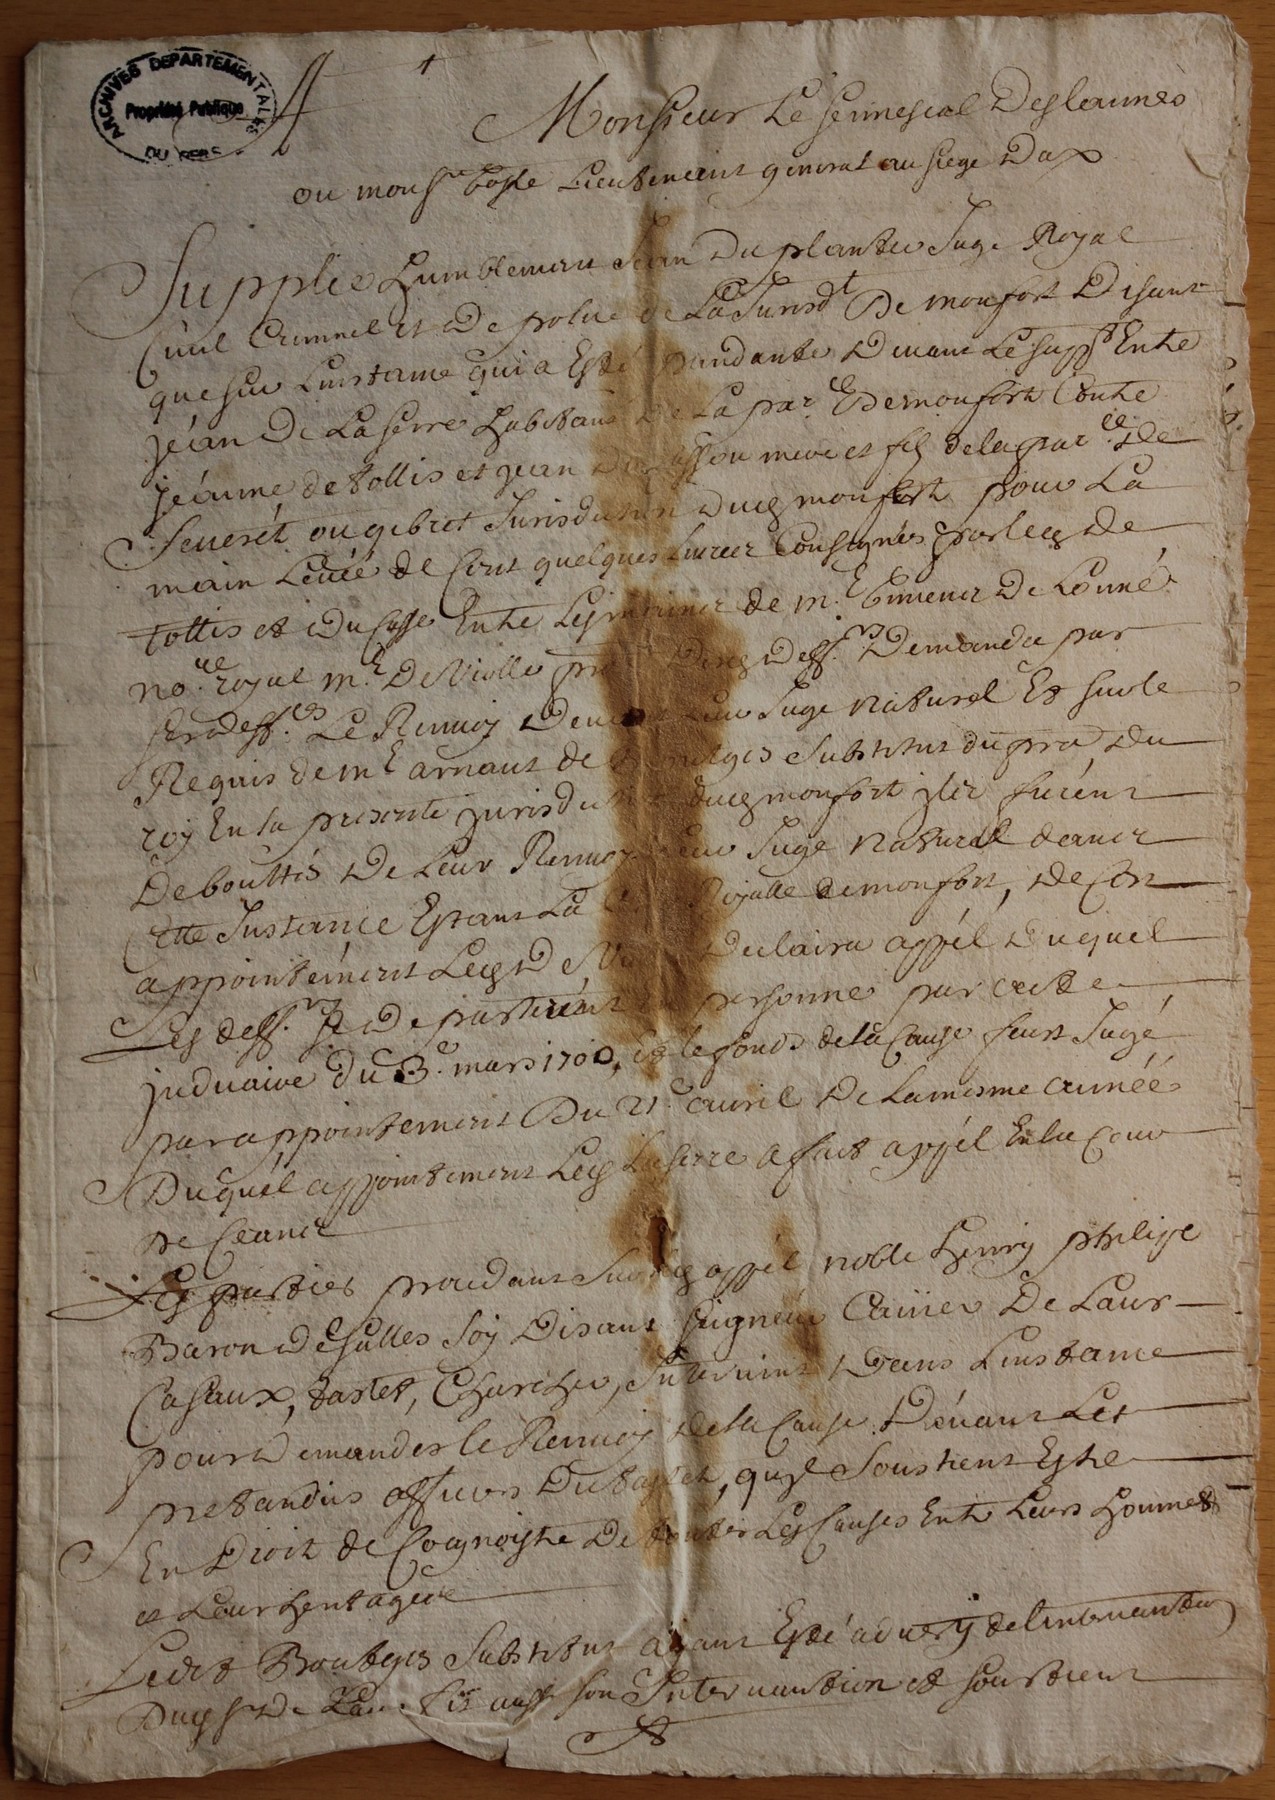 ARCHIVES DEPARTEMENTALES
Propriété Publique
DU GERS
Monsieur Le Sennescal Deslannes
ou monsr Lieutenant general au siege Dax
Supplie humblement Jean Duplantier Juge Royal
Civil Criminel et De police de La Jurisdt De monfort Disant
que sur Linstance qui a Esté pandante Devant Le suppt Entre
jean De Laserre habitant De La parce De monfort Contre
jeanne de tollis et jean Ducasse ou mere et fils de la parce De
ou gibret Jurisdiction Dudt monfort pour La
main Levée de Cent quelques Livres Consignés par lesd De
tollis et Ducasse Entre Les mains de me De Lonné
nore royal me De Violle Desd Deffrs Demanda par
sesd deffces Le Renvoy Devant Leur Juge naturel Et sur le
Requis de me arnaut de Substitut du pror Du
roy En la presente jurisdiction dud monfort ils furent
Debouttés De Leur Renvoy Leur Juge Naturel de
Cette Instance Estant La Royalle de monfort, De Cet
appointement Lesd Declaira appél Duquel
Les deffrs se Departirent En personne par acte
judiciaire Du 3e mars 1700, Et le fonds de la Cause feust Jugé
par appointement Du 21e avril De La mesme année
Duquél appointement Led Laserre a fait appél En la Cour
De Ceans
Les parties procedant Sur led appél noble henry philipe
Baron De Salles soy Disant seigneur De Laur
Casaux, tastet, Intervint Dans Linstance
pour Demander le Renvoy de la Cause Dévant Les
pretandus officiers Du tastet, quil Soustient Estre
En Droit de Cognoistre De toutes Les Causes Entre Leurs hommes
et
Ledit Substitut ayant Esté adverty de lintervantion
Dud sr De fit aussy son Intervantion et soustient